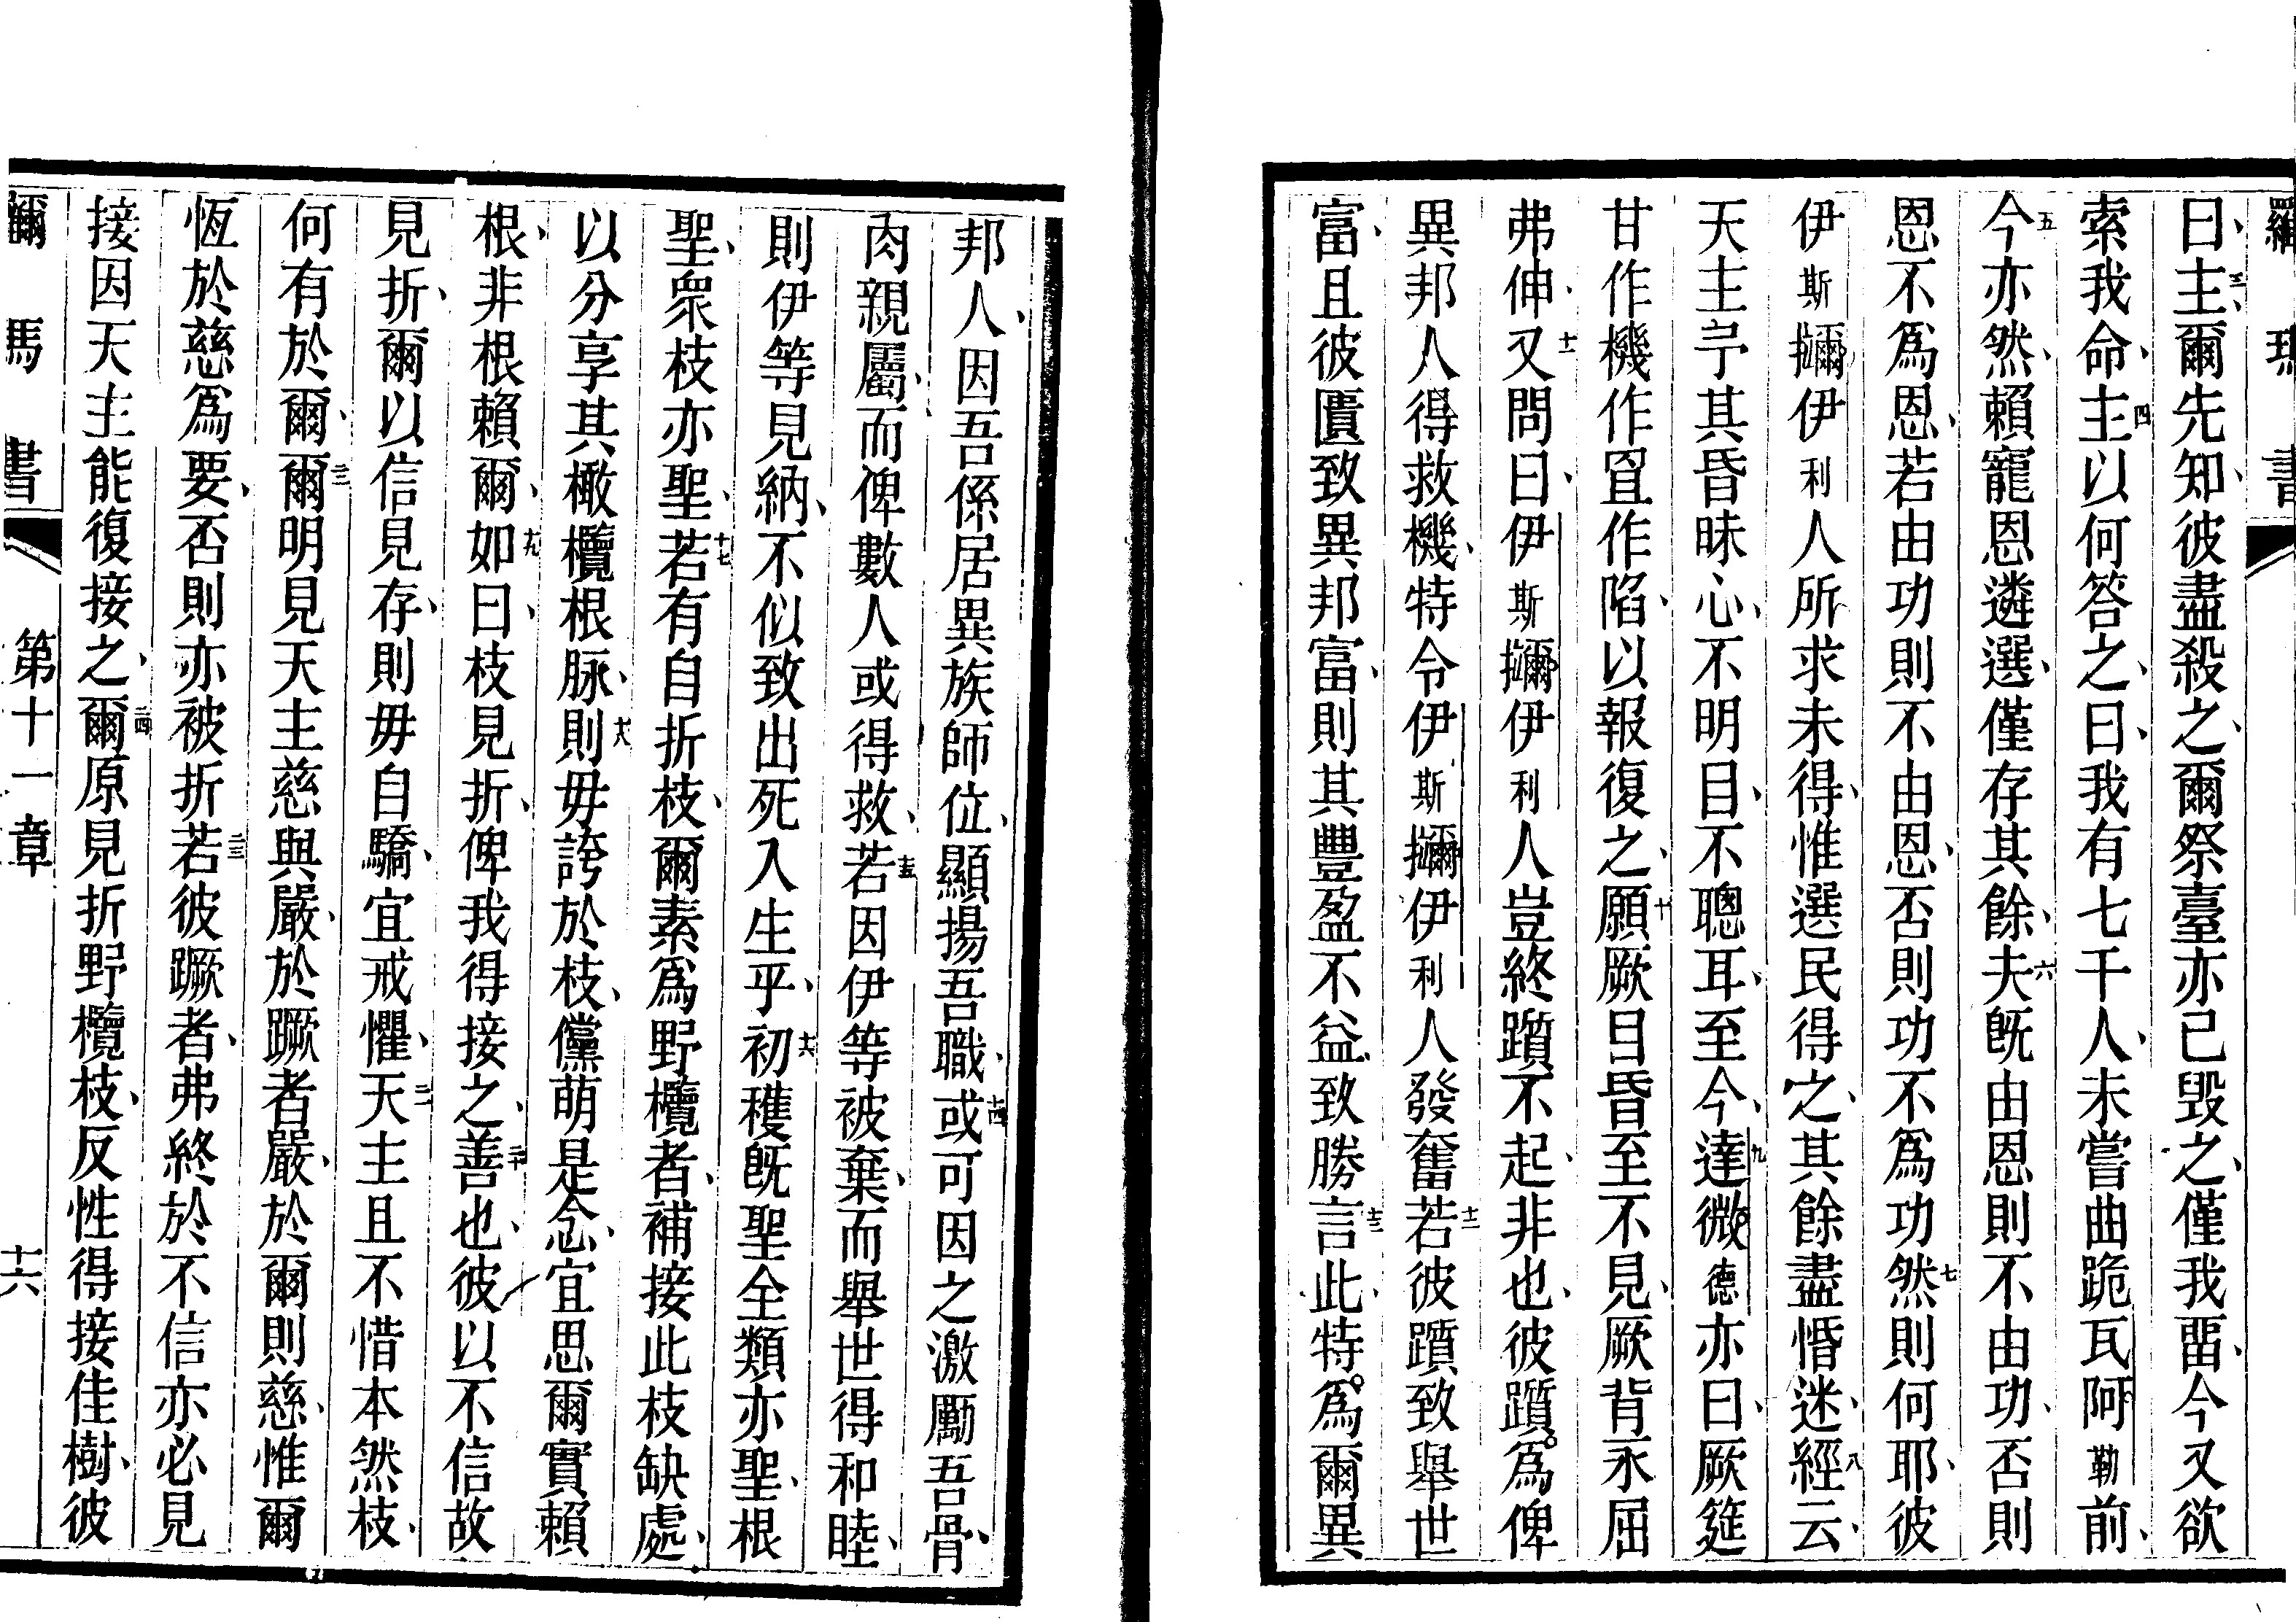 羅 瑪 書
曰主三爾先知彼盡殺之爾祭臺亦已毀之僅我畱今又欲
索我命主四以何答之曰我有七千人未嘗曲跪瓦阿勒前
今五亦然賴寵恩遴選僅存其餘夫六旣由恩則不由功否則
恩不爲恩若由功則不由恩否則功不爲功然七則何耶彼
伊斯𡃤伊利人所求未得惟選民得之其餘盡惛迷經八云
天主予其昏昧心不明目不聰耳至今達九微德亦曰厥筵
甘作機作罝作陷以報復之願十厥目昏至不見厥背永屈
弗伸又十一問曰伊斯𡃤伊利人豈終躓不起非也彼躓爲俾
異邦人得救機特令伊斯𡃤伊利人發奮若十二彼躓致舉世
富且彼匱致異邦富則其豐盈不益致勝言十三此特爲爾異
邦人因吾係居異族師位顯揚吾職或十四可因之激厲吾骨
肉親屬而俾數人或得救若十五因伊等被棄而舉世得和睦
則伊等見納不似致出死入生乎初十六穫旣聖全類亦聖根
聖衆枝亦聖若十七有自折枝爾素爲野欖者補接此枝缺處
以分享其橄欖根脉則十八毋誇於枝儻萌是念宜思爾實賴
根非根賴爾如十九曰枝見折俾我得接之善二十也彼以不信故
見折爾以信見存則毋自驕宜戒懼天二一主且不惜本然枝
何有於爾爾二二明見天主慈與嚴於蹶者嚴於爾則慈惟爾
恆於慈爲要否則亦被折若二三彼蹶者弗終於不信亦必見
接因天主能復接之爾二四原見折野欖枝反性得接佳樹彼
羅 瑪 書 第十一章 十六